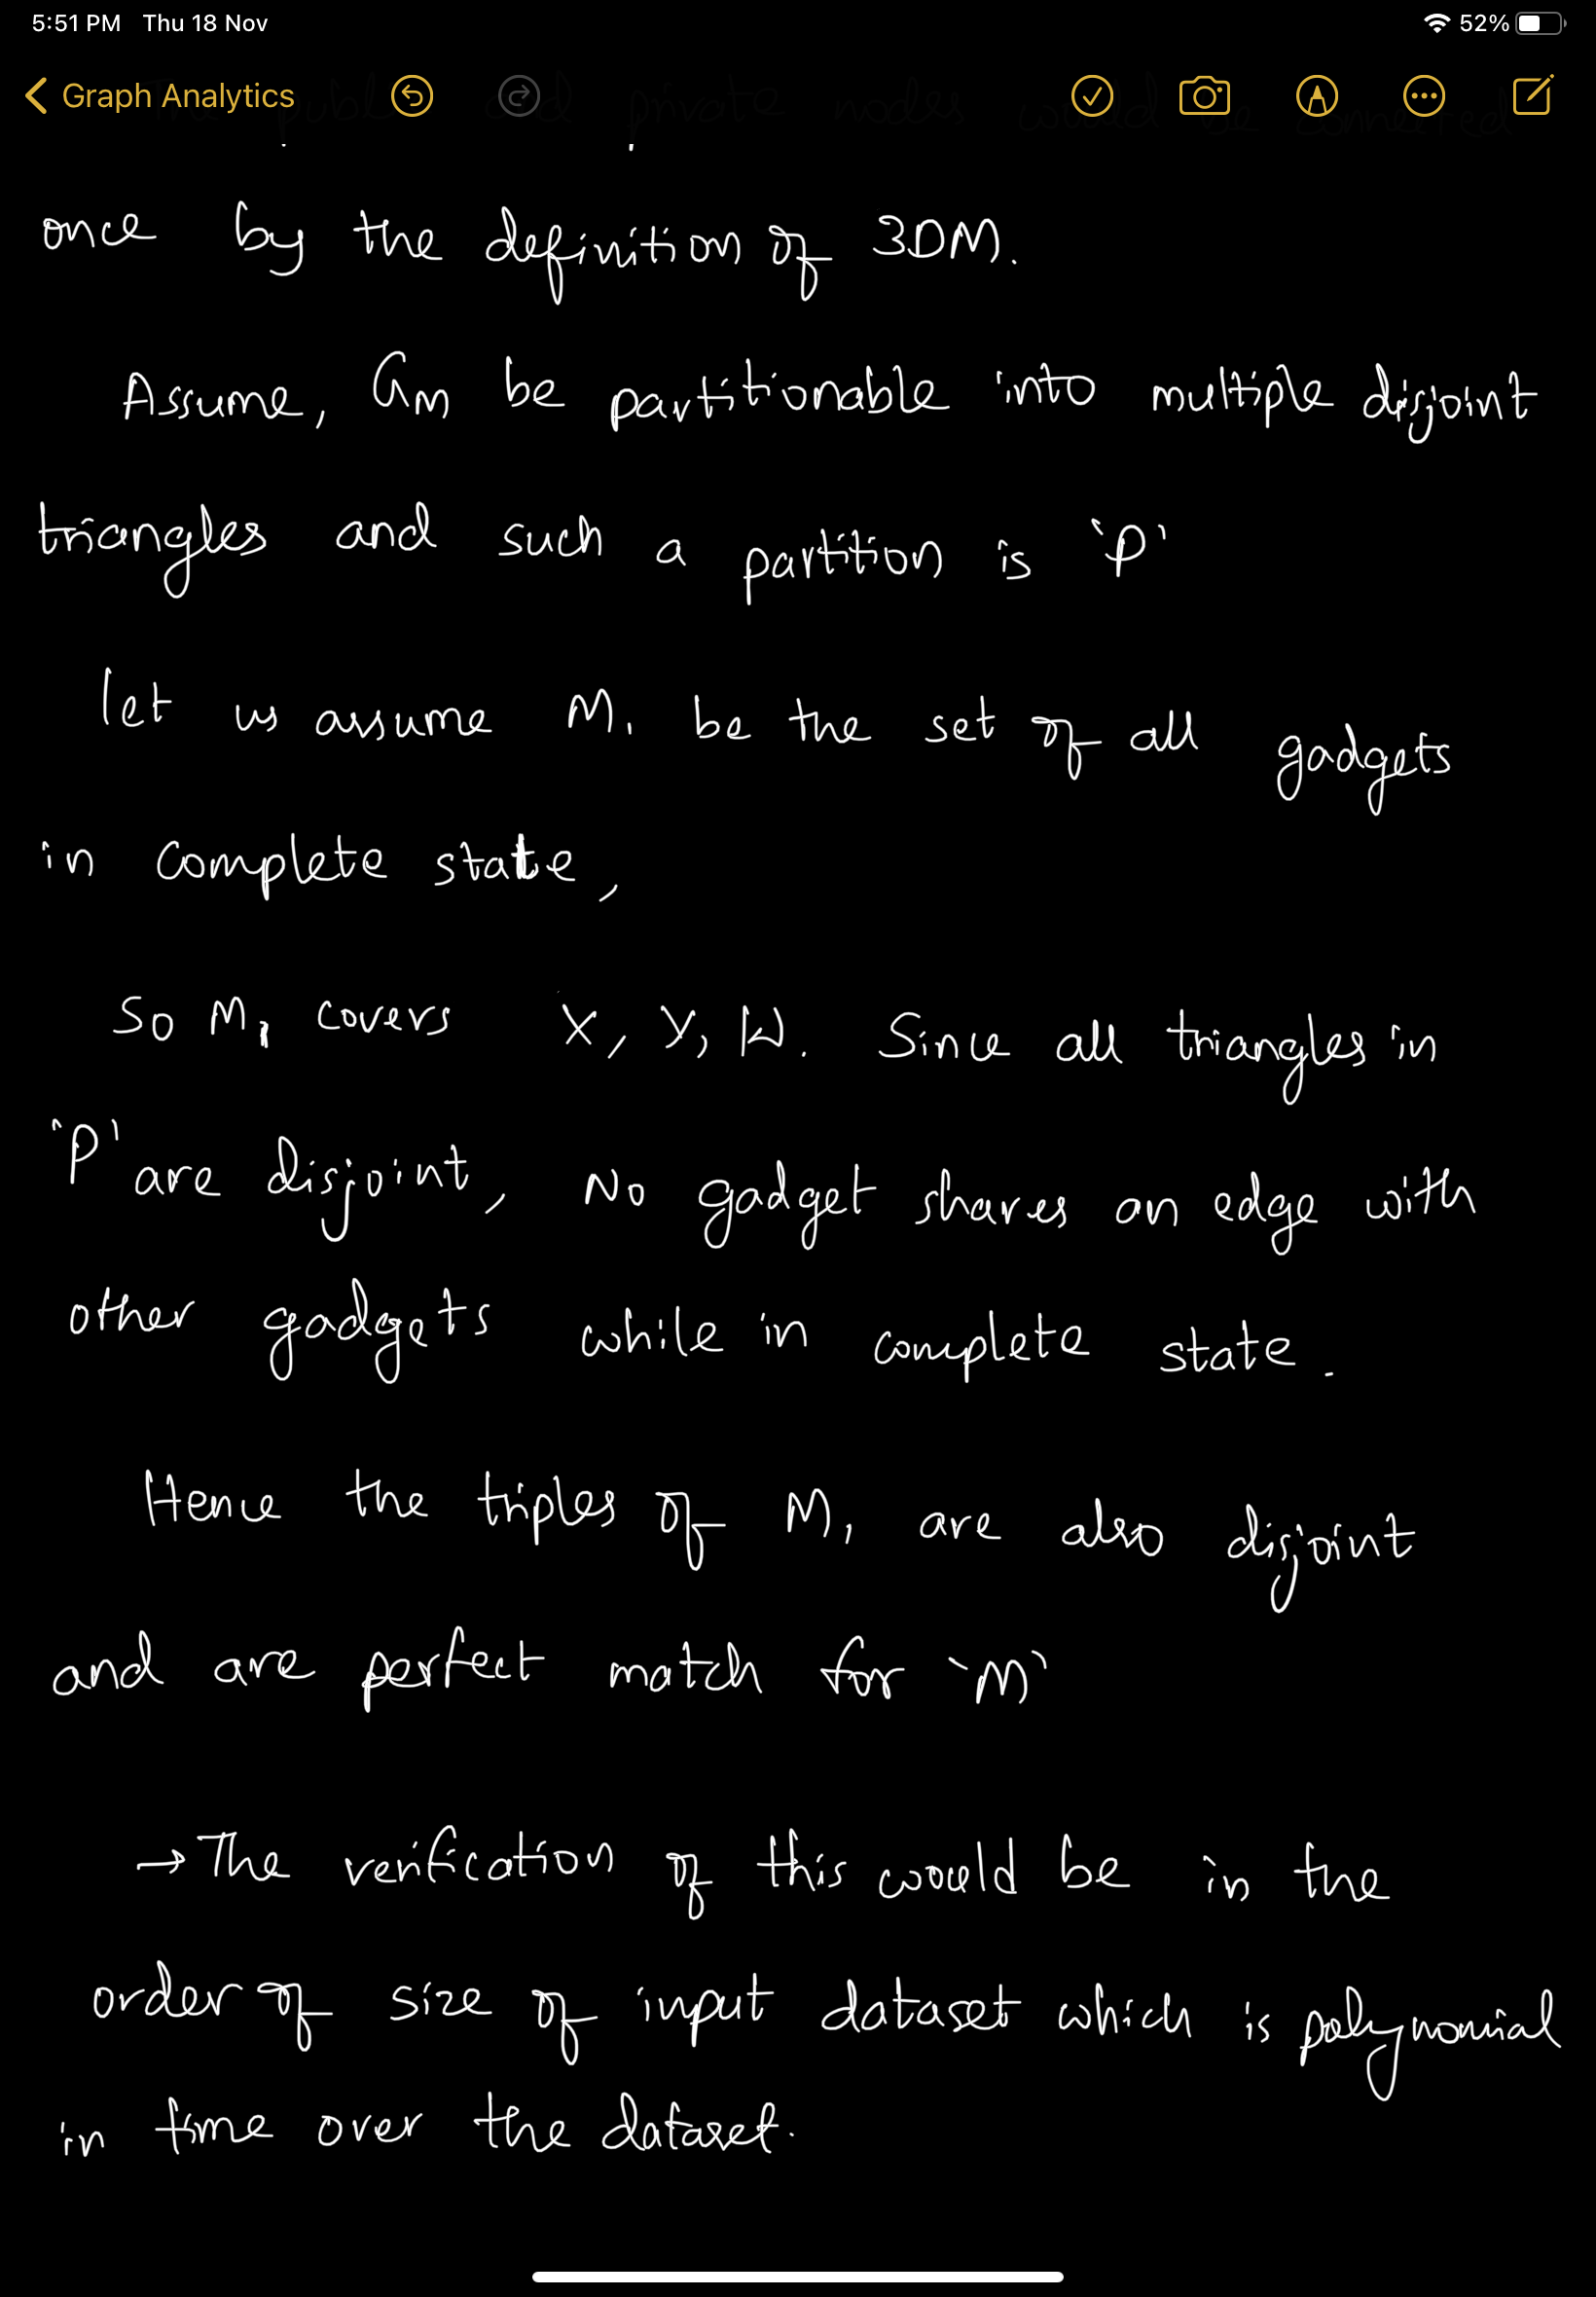 5:51 PM Thu 18 Nov 52%
Graph Analytics
private nodes would be connected
once by the definition of 3DM.
Assume, GM be partitionable into multiple disjoint
triangles and such a partition is 'P'
let us assume M1 be the set of all gadgets
in complete state,
So M1 covers X, Y, W. Since all triangles in
'P' are disjoint, No gadget shares an edge with
other gadgets while in complete state.
Hence the triples of M1 are also disjoint
and are perfect match for 'M'
→ The verification of this would be in the
order of size of input dataset which is polynomial
in time over the dataset.